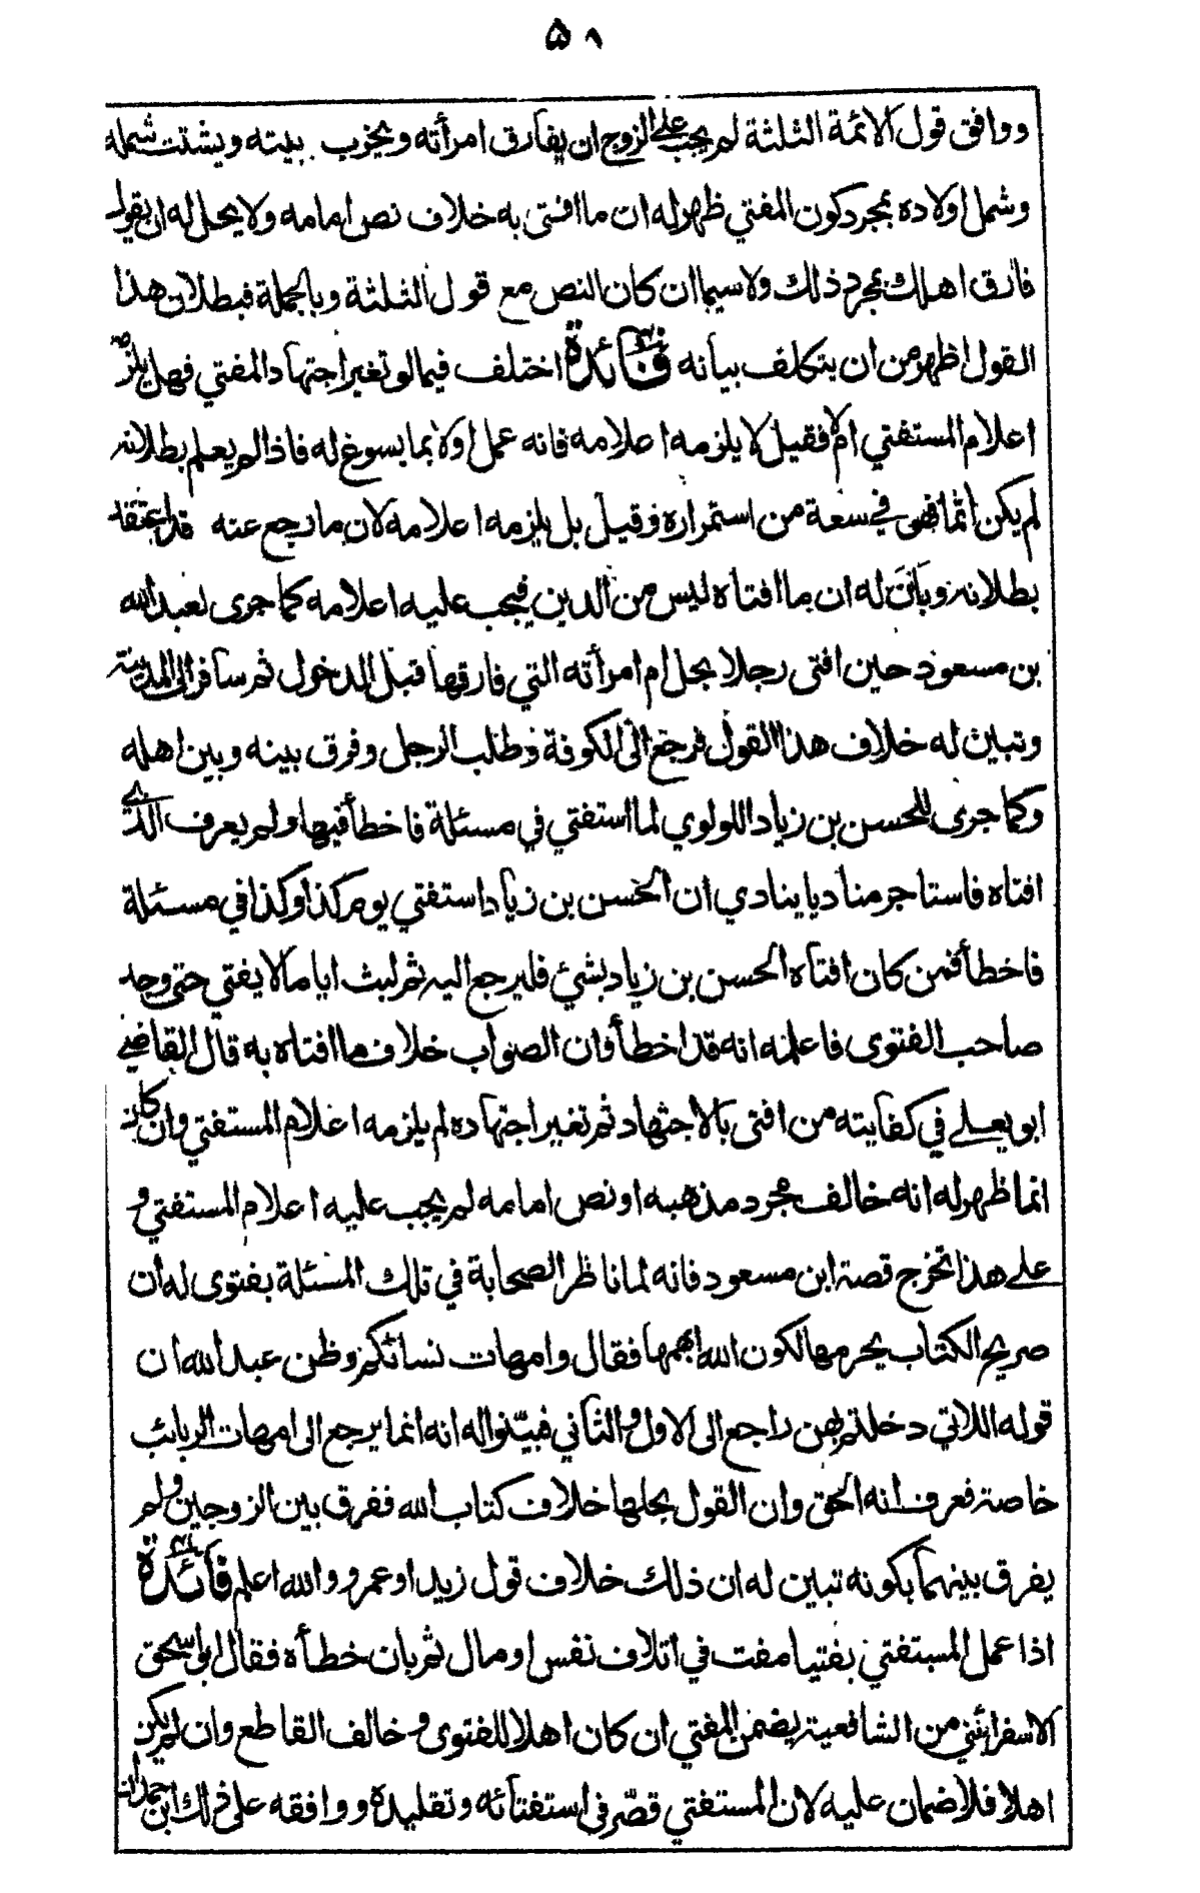 ۵۸
ووافق قول الائمة الثلثة لم يجب على الزوج ان يفارق امرأته ويخرب بيته ويشتت شمله
وشمل اولاده بمجرد كون المفتي ظهر له ان ما افتى به خلاف نص امامه ولا يحل له ان يقول
فارق اهلك بمجرد ذلك ولا سيما ان كان النص مع قول الثلثة وبالجملة فبطلان هذا
القول اظهر من ان يتكلف بيانه فائدة اختلف فيما لو تغير اجتهاد المفتي فهل يلزمه
اعلام المستفتي ام لا فقيل لا يلزمه اعلامه فانه عمل اولا بما يسوغ له فاذا لم يعلم بطلانه
لم يكن اثما فهو في سعة من استمراره وقيل بل يلزمه اعلامه لان ما رجع عنه قد اعتقد
بطلانه وبان له ان ما افتاه ليس من الدين فيجب عليه اعلامه كما جرى لعبد الله
بن مسعود حين افتى رجلا بحل ام امرأته التي فارقها قبل الدخول ثم سافر الى المدينة
وتبين له خلاف هذا القول فرجع الى الكوفة وطلب الرجل وفرق بينه وبين اهله
وكما جرى للحسن بن زياد اللولوي لما استفتي في مسئلة فاخطأ فيها ولم يعرف الذي
افتاه فاستاجر مناديا ينادي ان الحسن بن زياد استفتي يوم كذا وكذا في مسئلة
فاخطأ فمن كان افتاه الحسن بن زياد بشيء فليرجع اليه ثم لبث اياما لا يفتي حتى وجد
صاحب الفتوى فاعلمه انه قد اخطأ وان الصواب خلاف ما افتاه به قال القاضي
ابو يعلي في كفايته من افتى بالاجتهاد ثم تغير اجتهاده لم يلزمه اعلام المستفتي وان كان
انما ظهر له انه خالف مجرد مذهبه او نص امامه لم يجب عليه اعلام المستفتي و
على هذا تخرج قصة ابن مسعود فانه لما ناظر الصحابة في تلك المسئلة بفتوى له ان
صريح الكتاب يحرمها لكون الله ابهمها فقال وامهات نسائكم وظن عبد الله ان
قوله اللاتي دخلتم بهن راجع الى الاول والثاني فبينوا له انه انما يرجع الى امهات الربائب
خاصة فعرف انه الحق وان القول بحلها خلاف كتاب الله ففرق بين الزوجين ولم
يفرق بينهما بكونه تبين له ان ذلك خلاف قول زيد او عمرو والله اعلم فائدة
اذا عمل المستفتي بفتيا مفت في اتلاف نفس او مال ثم بان خطأه فقال ابو اسحق
الاسفرائني من الشافعية يضمن المفتي ان كان اهلا للفتوى وخالف القاطع وان لم يكن
اهلا فلا ضمان عليه لان المستفتي قصّر في استفتائه وتقليده ووافقه على ذلك ابن حمدان